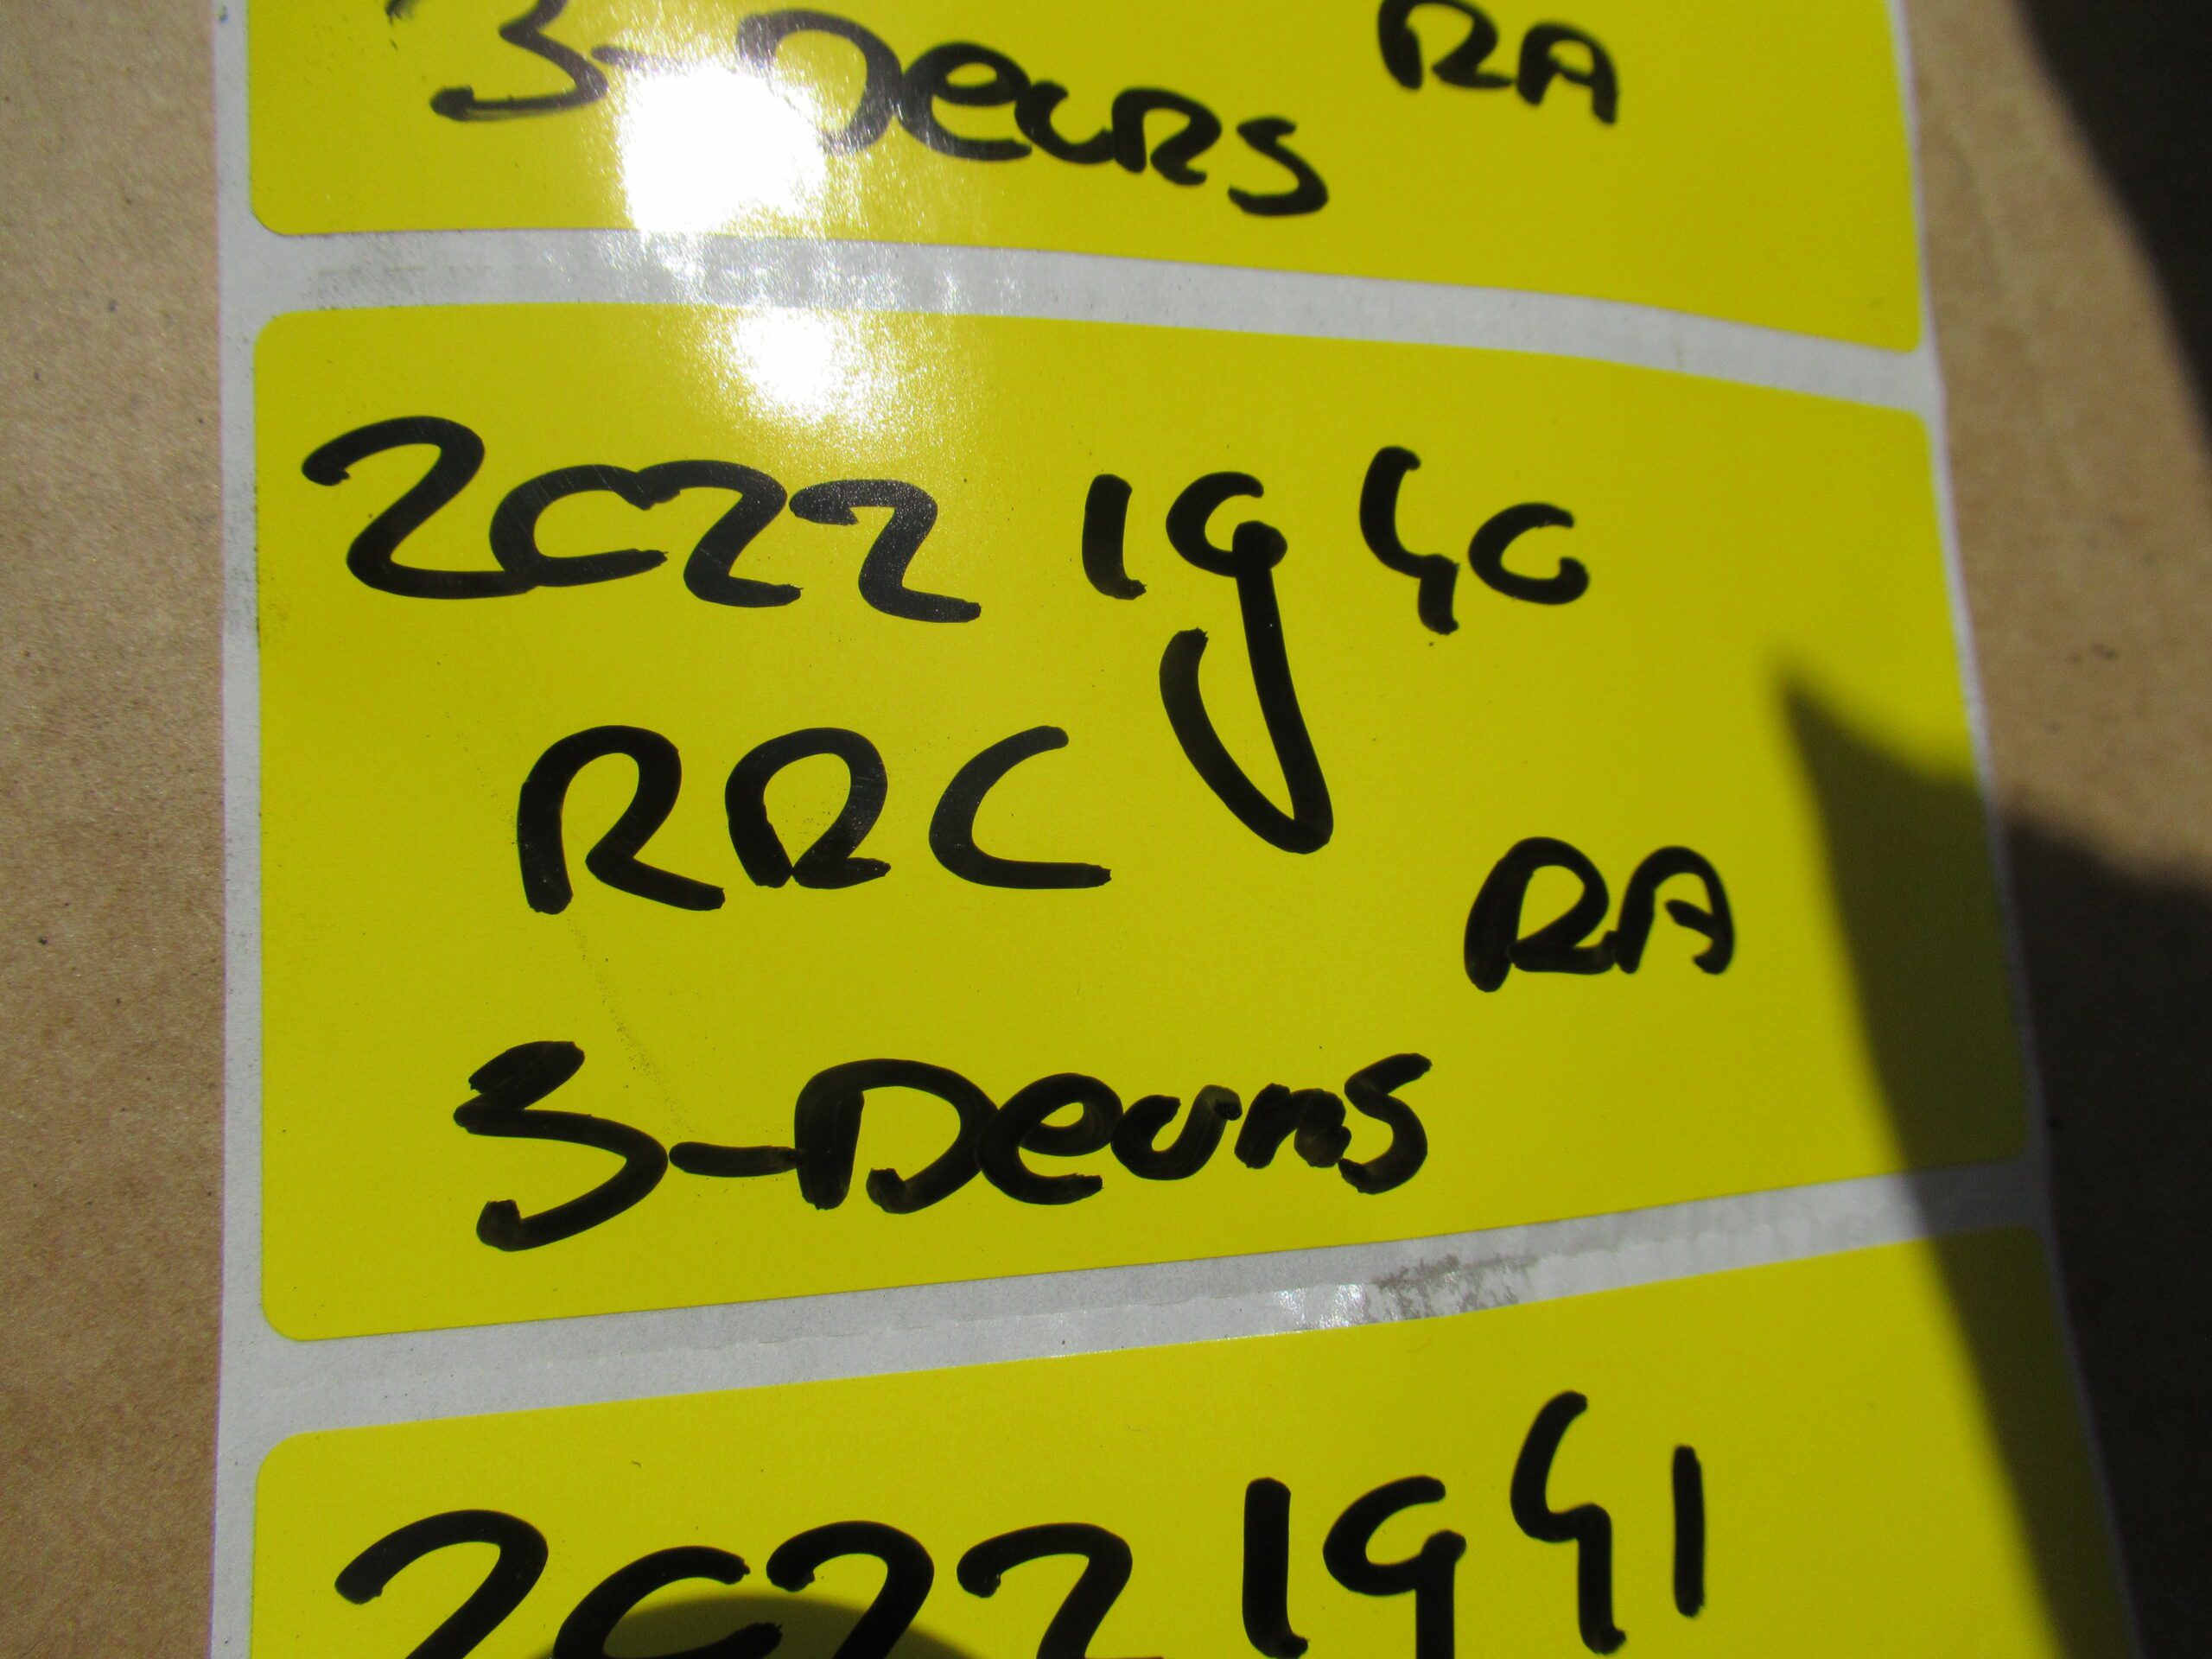 3-Deurs RA
2022 1940
RRC
RA
3-Deurs
2022 1941